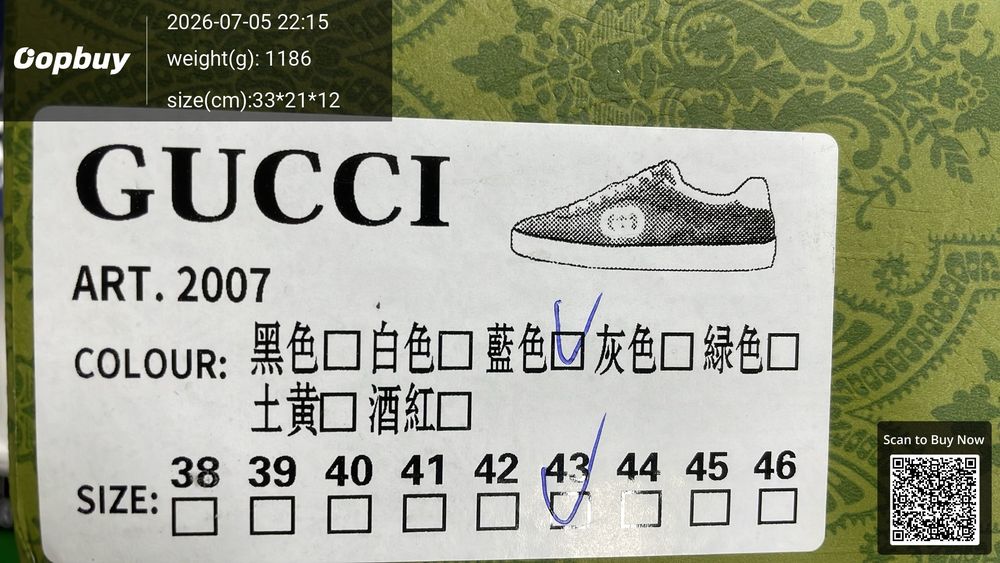 Oopbuy
2026-07-05 22:15
weight(g): 1186
size(cm):33*21*12
GUCCI
ART. 2007
COLOUR: 黑色□ 白色□ 藍色□ 灰色□ 緑色□
土黄□ 酒紅□
38 39 40 41 42 43 44 45 46
SIZE: □ □ □ □ □ □ □ □ □
Scan to Buy Now